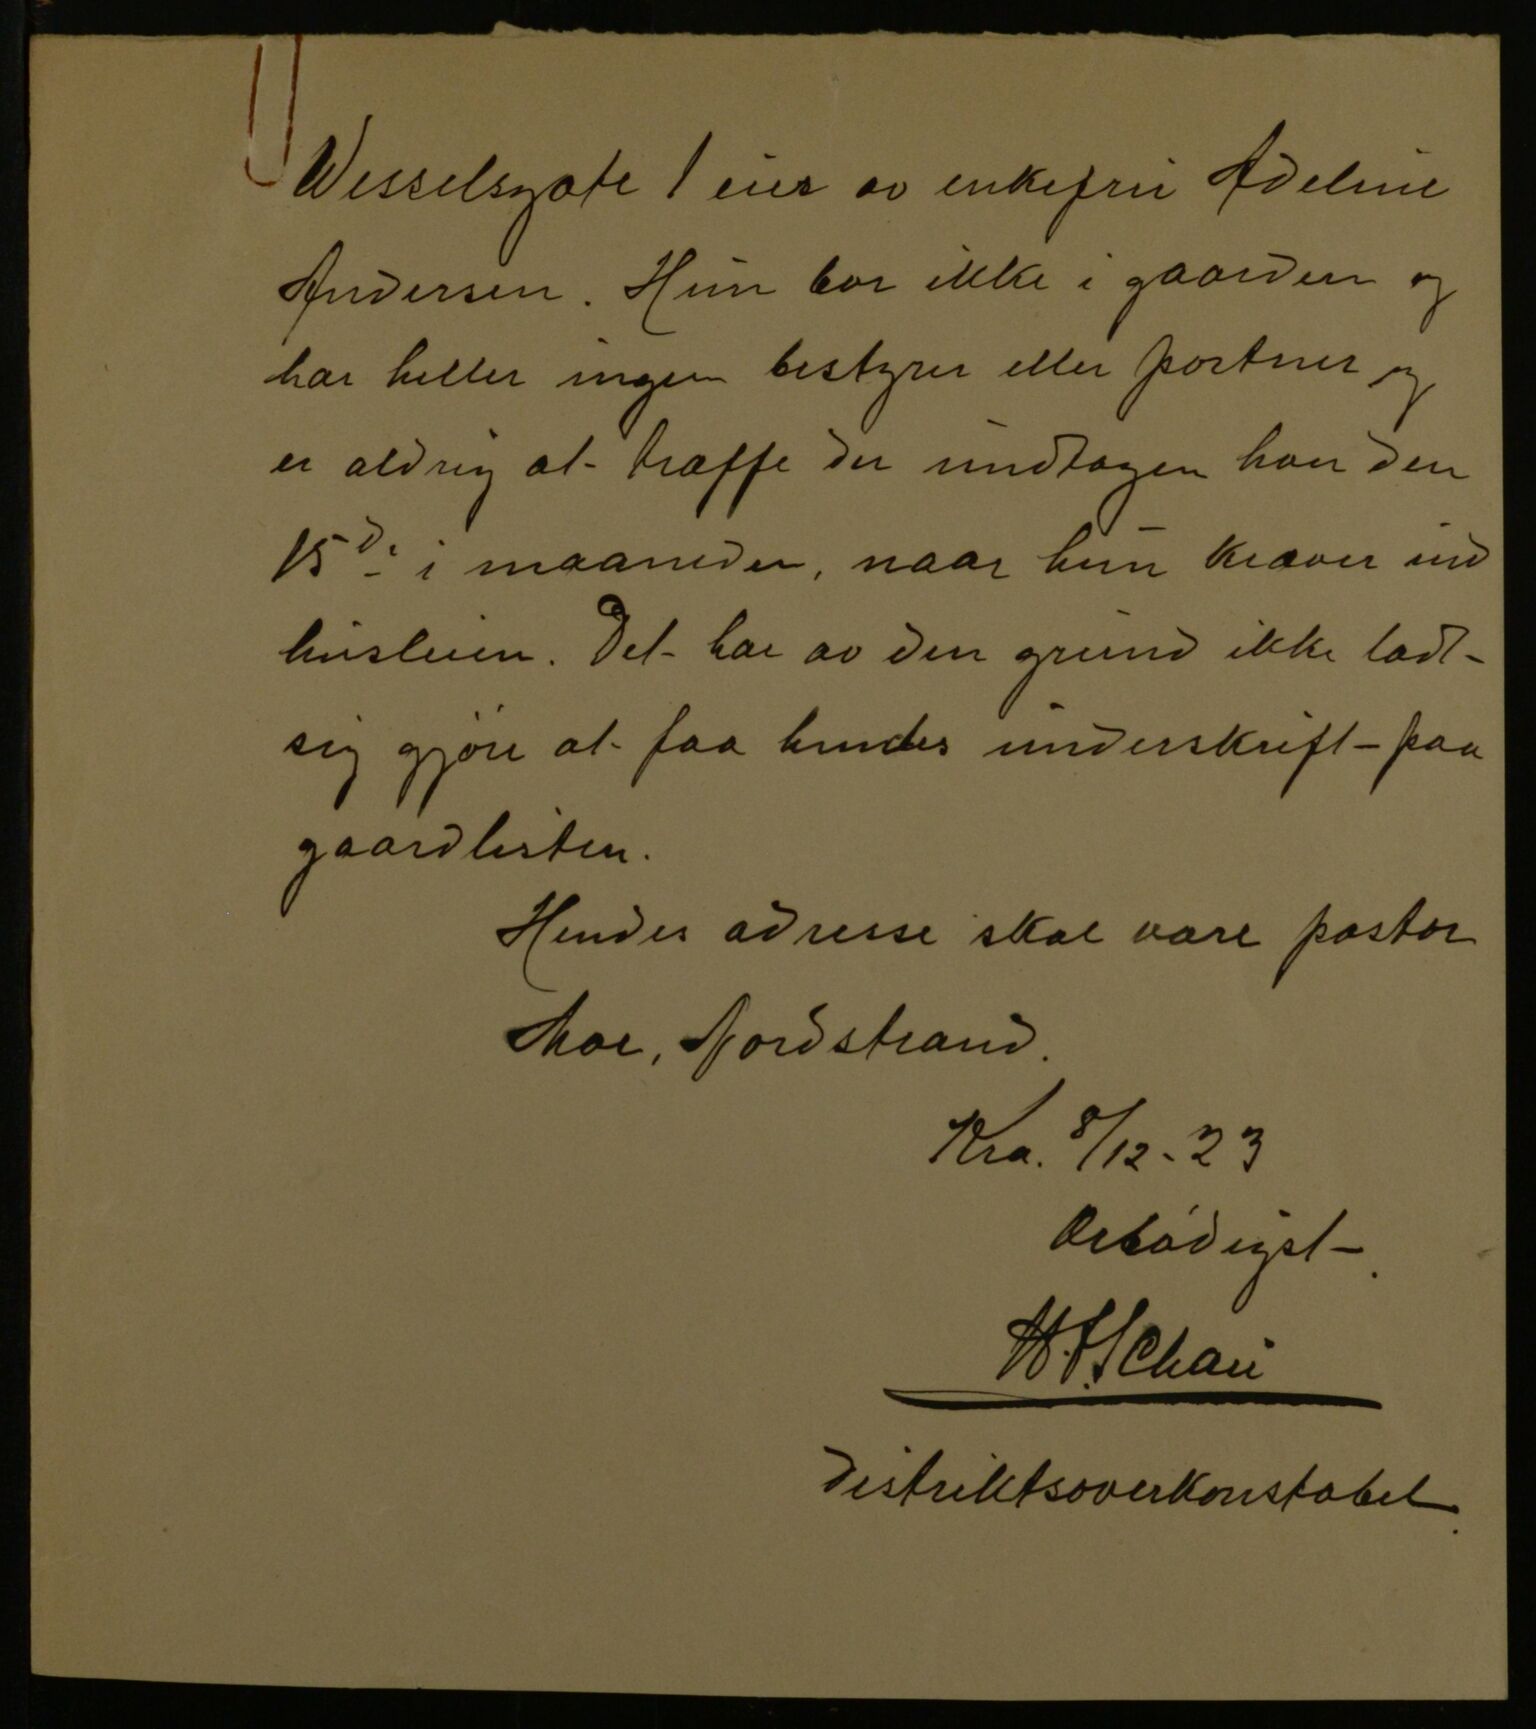 Wesselsgate 1 eies av enkefru Adeline
Andersen. Hun bor ikke i gaarden og
har heller ingen bestyrer eller portner og
er aldrig at træffe der undtagen hver den
15d: i maaneden, naar hun kræver ind
husleien. Det har av den grund ikke ladt
sig gjöre at faa hendes underskrift paa
gaardlisten.
Hendes adresse skal være pastor
Moe, Nordstrand.
Kra. 8/12-23
Ærbödigst
Schau
distriktsoverkonstabel.